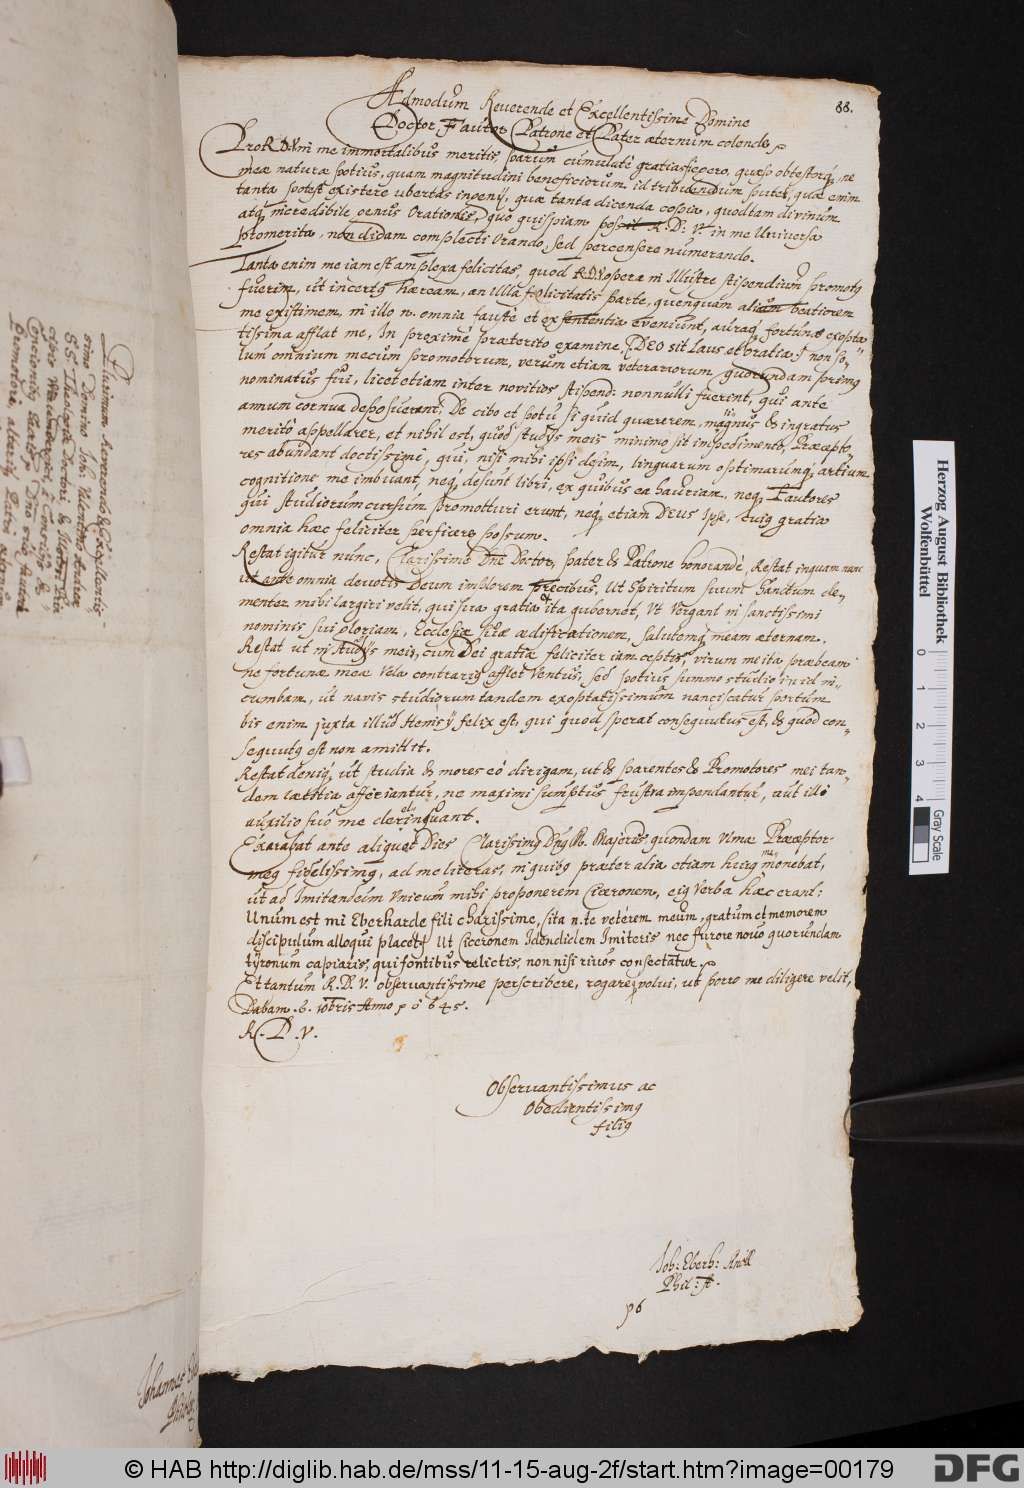 88.
Admodum Reverende et Excellentissime Domine
Doctor Flautor Patrone et Pater æternum colende
Pro R. D. V. in me immortalibus meritis, parum cumulatè gratias si ero, quæso obtestorq, ne
meæ naturæ potius, quam magnitudini beneficiorum id tribuendum putet, quæ enim
tanta potest existere ubertas ingenij, quæ tanta dicenda copia, quodtam divinum
atq incredibile genus Orationis, quo quispiam possit R. D. V. in me Universa
promerita, non dicam complecti Orando, sed percensere numerando.
Tanta enim me iam est amplexa felicitas, quod R. D. V. opera in Illustre stipendium promotq
fuerim, ut incertq hæream, an Ulla felicitatis parte, quenquam alium beatiorem
me existimem, in illo n. omnia faustè et ex sententia eveniunt, auraq fortunæ exopta-
tissima afflat me, In proximè præterito examine, (DEO sit Laus et Gratia) non so-
lum omnium mecum promotorum, verum etiam veterariorum quorundam primq
nominatus fui, licet etiam inter novitios stipend: nonnulli fuerint, qui ante
annum cornua deposuerant. De cibo et potu si quid quærerem, magnus & ingratus
meritò appellarer, et nihil est, quod studijs meis minimo sit impedimento, Præcepto-
res abundant doctissimi, qui, nisi mihi ipsi desim, linguarum optimarumq artium
cognitione me imbuant, neq desunt libri, ex quibus ea hauriam, neq Fautores
qui studiorum cursum promotturi erunt, neq etiam DEUS Ipse, cuiq gratia
omnia hæc feliciter perficere possum.
Restat igitur nunc, Clarissime Dne Doctor, Pater & Patrone honorande, Restat inquam nunc
ut ante omnia devotis Deum implorem precibus, Ut Spiritum suum Sanctum cle-
menter mihi largiri velit, qui sua gratia ita gubernet, Ut Vergant in sanctissimi
nominis sui gloriam, Ecclesiæ suæ ædificationem, salutemq meam æternam.
Restat ut in studijs meis, cum Dei gratia feliciter iam ceptis, virum me ita præbeam
ne fortunæ meæ Vela contrariq afflet Ventus, sed potius summo studio in id in-
cumbam, ut navis studiorum tandem exoptatissimum nanciscatur portum
bis enim juxta illud Hemisij felix est, qui quod sperat consequutus est, & quod con-
sequutq est non amittit.
Restat deniq, ut studia & mores eò dirigam, ut & parentes & Promotores mei tan-
dem lætitia afficiantur, ne maximi sumptus frustra impendantur, aut illi
auxilio suo me derelinquant.
Exarabat ante aliquot Dies Clarissimq Dnq M. Majeris quondam Ulmæ Præceptor
meq fidelissimq, ad me literas, in quibq præter alia etiam huiq me monebat,
ut ad Imitandum Unicum mihi proponerem Ciceronem, eiq Verba hæc erant:
Unum est mi Eberharde fili charissime, sita n. te veterem meum, gratum et memorem
discipulum alloqui placet, Ut Ciceronem Identidem Imiteris nec furore novo quorundam
tÿronum capiaris, qui fontibus relictis, non nisi rivos consectatur.
Et tantum R. D. V. observantissime perscribere, rogareq volui, ut porro me diligere velit,
Dabam. 6. 10bris Anno 1645.
R. D. V.
Observantissimus ac
Obedientissimq
filiq
Joh: Eberh: Anoll
Phil: St.
96
Plurimum Reverendo & Excellentis-
simo Domino Joh: Valentino Andreæ
SS. Theologiæ Doctori, &
Johannes
Herzog August Bibliothek
Wolfenbüttel
0 1 2 3 4
Gray Scale
© HAB http://diglib.hab.de/mss/11-15-aug-2f/start.htm?image=00179
DFG